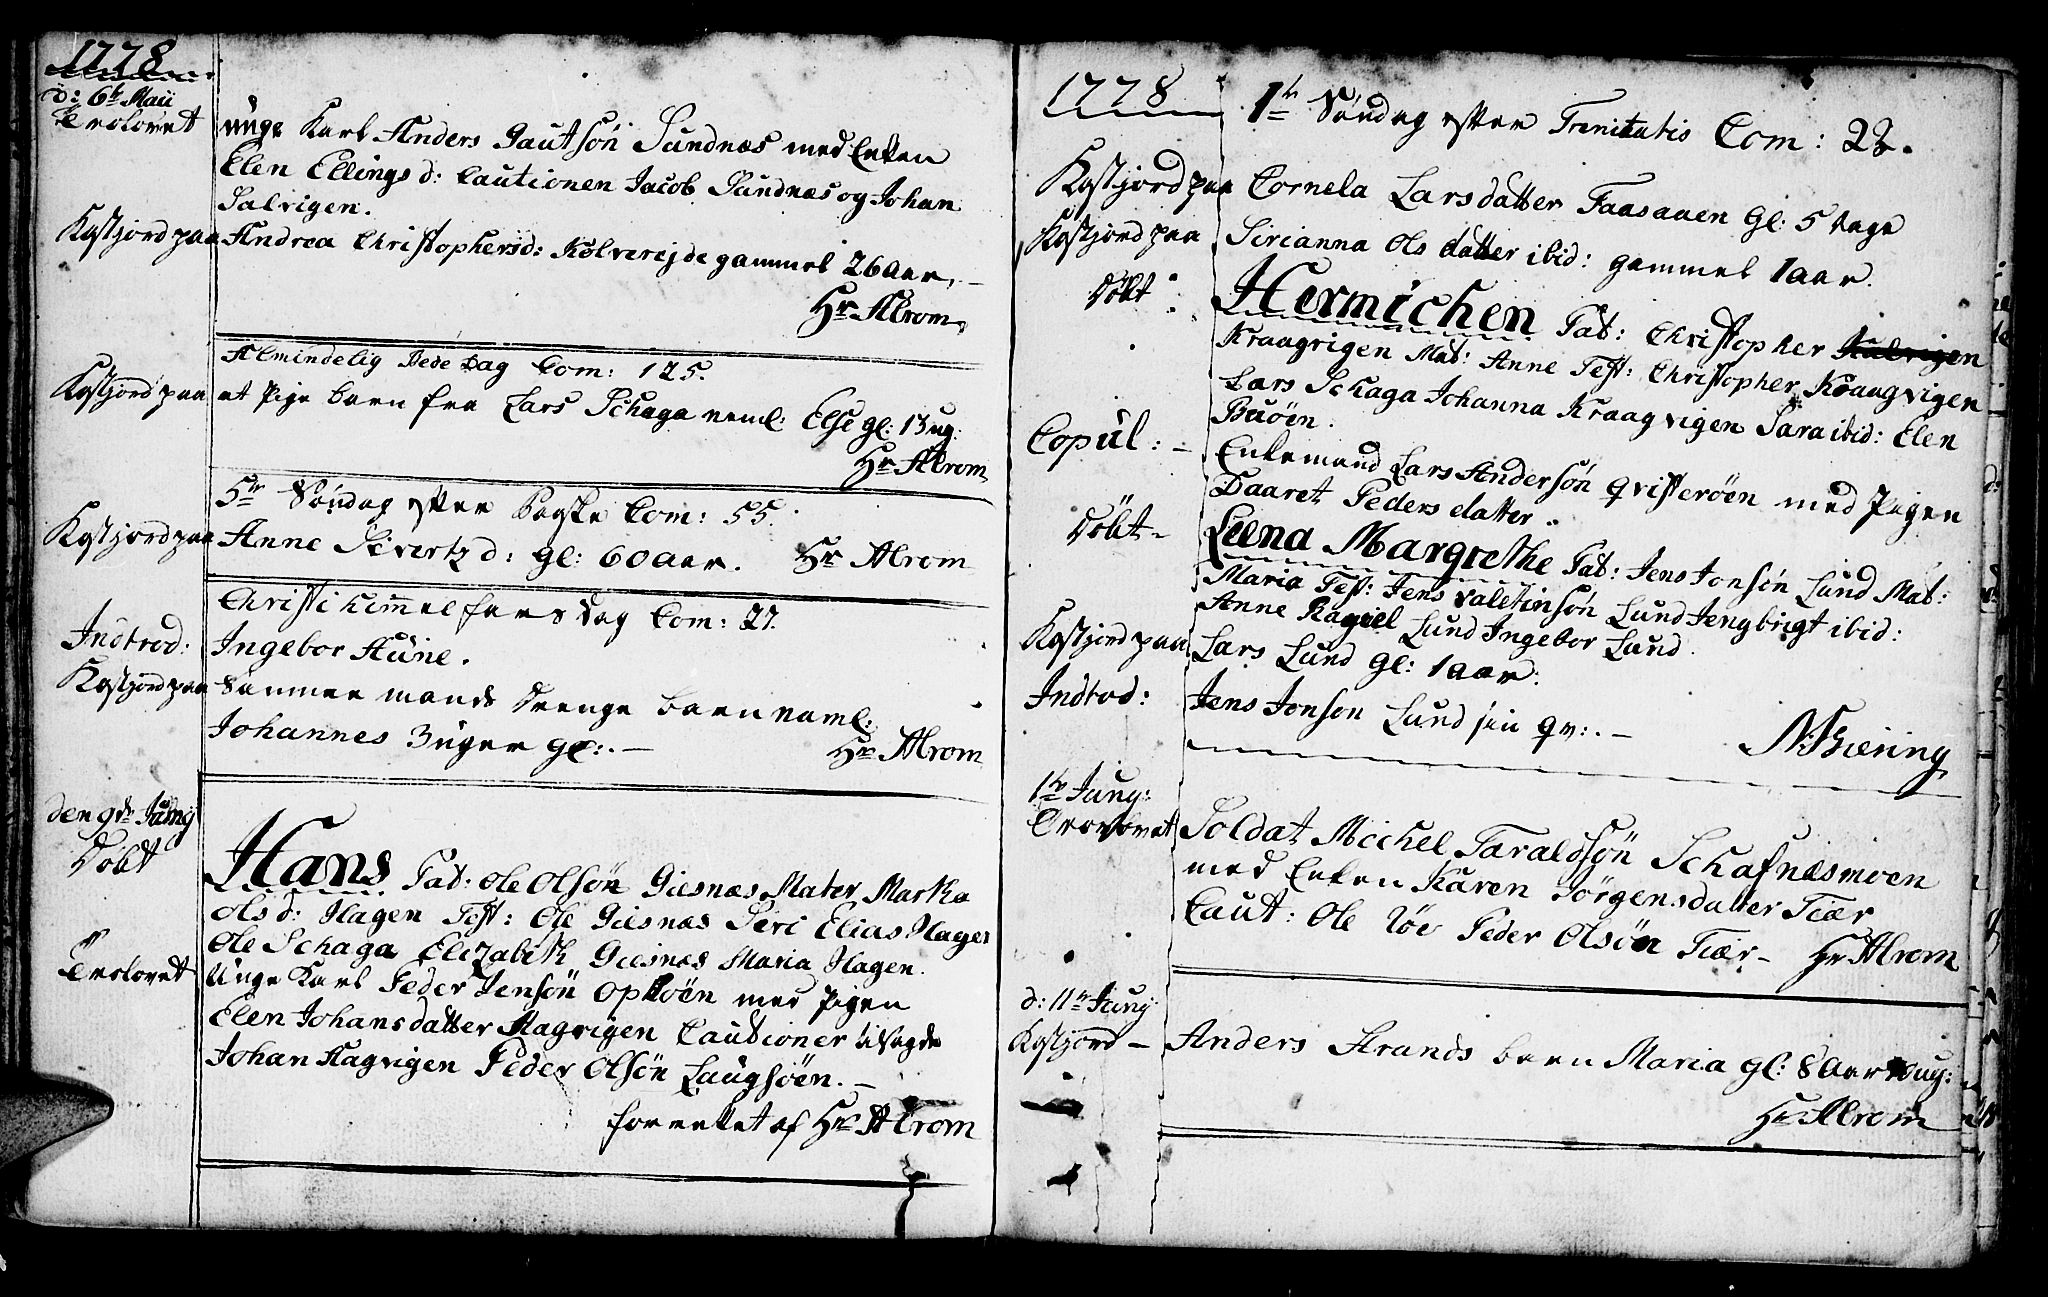 1778
d: 6te Maii
Troloret
unge Karl Anders Gautsøn Sundnæs med Enken
Elen Ellings d: Cautionen Jacob Sundnæs og Johan
Salvigen.
Kastjord paa Andrea Christophersd: Kolverejde gammel 26 Aar.
Hr Alrom
Almindelig Bede Dag Com: 125.
Kastjord paa et Pige barn fra Lars Schaga neml: Else gl: 13 ug:
Hr Alrom
5te Søndag efter Paaske Com: 55.
Kastjord paa Anne Sivertz d: gl: 60 aar. Hr Alrom
Christi himmelfars dag Com: 27.
Indtrod: Ingebor Aune.
Kastjord paa Sammer mands drenge barn naml:
Johannes 3 uger gl: . —
Hr Alrom
den 9de Juny
Døbt
Hans Pat: Ole Olsøn Giesnæs Mater Marta
Ols d: Hagen Test: Ole Giesnæs Siri Elias Hagen
Ole Schaga Elizabeth Giesnæs Maria Hagen.
Troloret Unge Karl Peder Jensøn Opløen med Pigen
Elen Johansdatter Aagvigen Cautioner tilsagde
Johan Aagvigen Peder Olsøn Laugsøen. —
forrettet af Hr Alrom
1778
1te Søndag efter Trenitatis Com: 22.
Kastjord paa Cornela Larsdatter Faasauen Gl: 5 dage
Kastjord paa Sirianna Ols datter ibid: gammel 1 aar.
Døbt Hermichen Pat: Christopher
Kraagvigen Mat: Anne Test: Christopher Kraagvigen
Lars Schaga Johanna Kraagvigen Sara ibid: Elen
Buøen.
Copul: - Enkemand Lars Andersøn Qvisterøen med Pigen
Daaret Pedersdatter.
Døbt - Leena Margrethe Pat: Jens Jonsøn Lund Mat:
Maria Test: Jens Valetinsøn Lund Jengbrigt ibid:
Anne Ragiel Lund Ingebor Lund
Kastjord paa Lars Lund gl: 1 aar:
Indtrod: Jens Jonson Lund sin qv: . —
N: Bæring
1te Juny:
Troloret Soldat Michel Taraldsøn Schafnæsmoen
med Enken Karen Jørgensdatter Fiær
Caut: Ole Røe Peder Olsøn Fiær — Hr Alrom
d: 11te Juny
Kastjord — Anders Strands barn Maria gl: 8 Aar
Hr Alrom